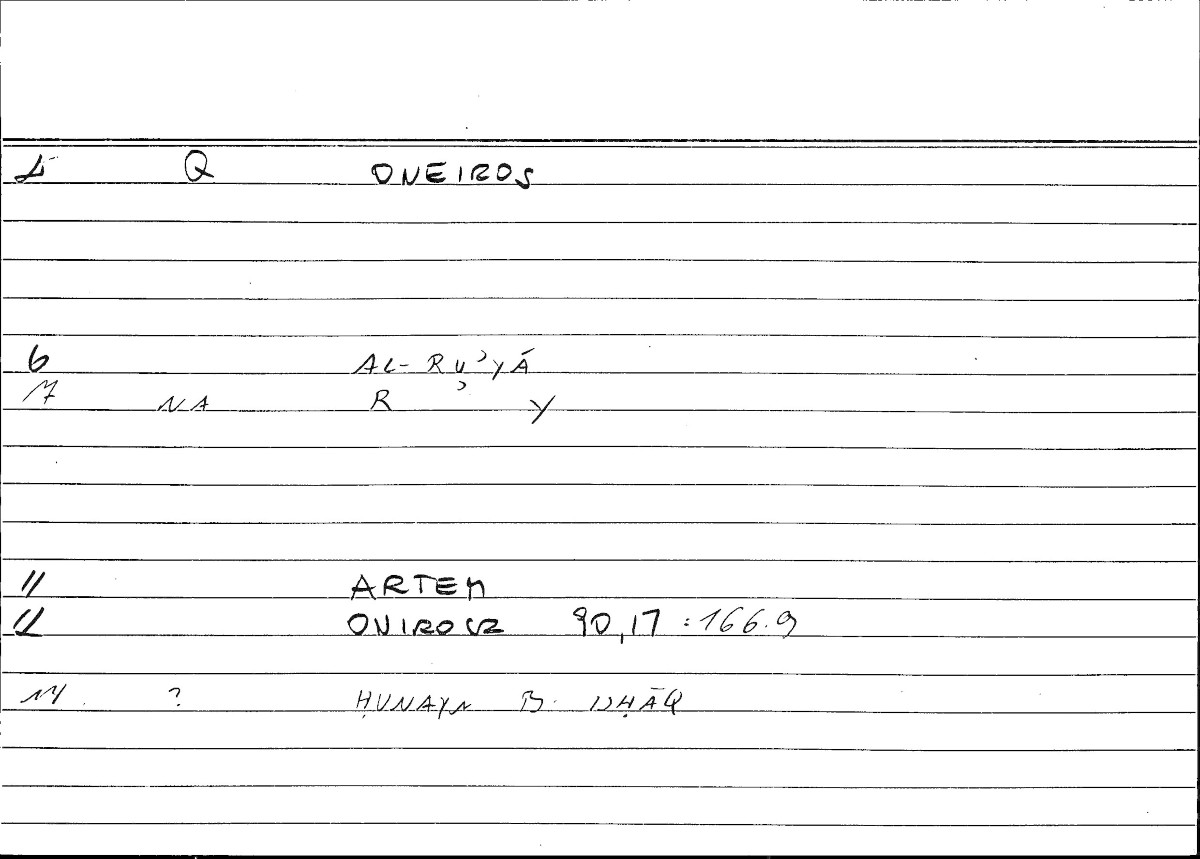 1 Q ONEIROS
6 AL-RUʾYĀ
7 NA R ʾ Y
11 ARTEM
12 ONIROCR 90,17 :166.9
14 ? ḤUNAYN B. ISḤĀQ